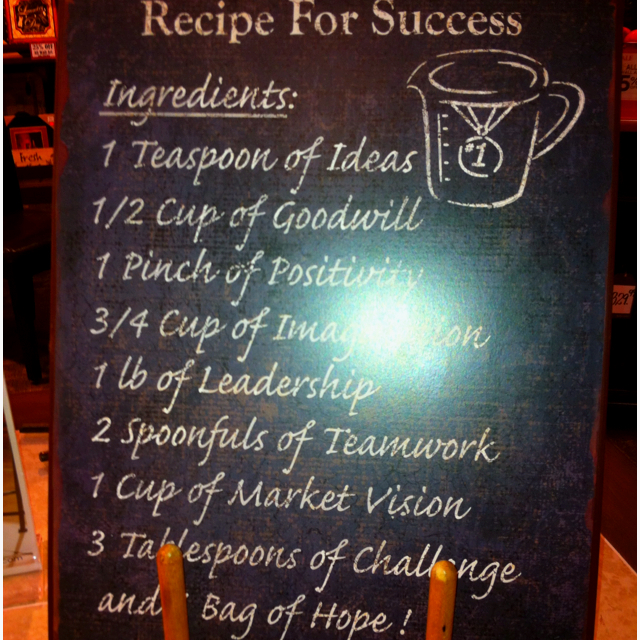 Recipe For Success
Ingredients:
1 Teaspoon of Ideas
#1
1/2 Cup of Goodwill
1 Pinch of Positivity
3/4 Cup of Imagination
1 lb of Leadership
2 Spoonfuls of Teamwork
1 Cup of Market Vision
3 Tablespoons of Challenge
and Bag of Hope!
Fresh